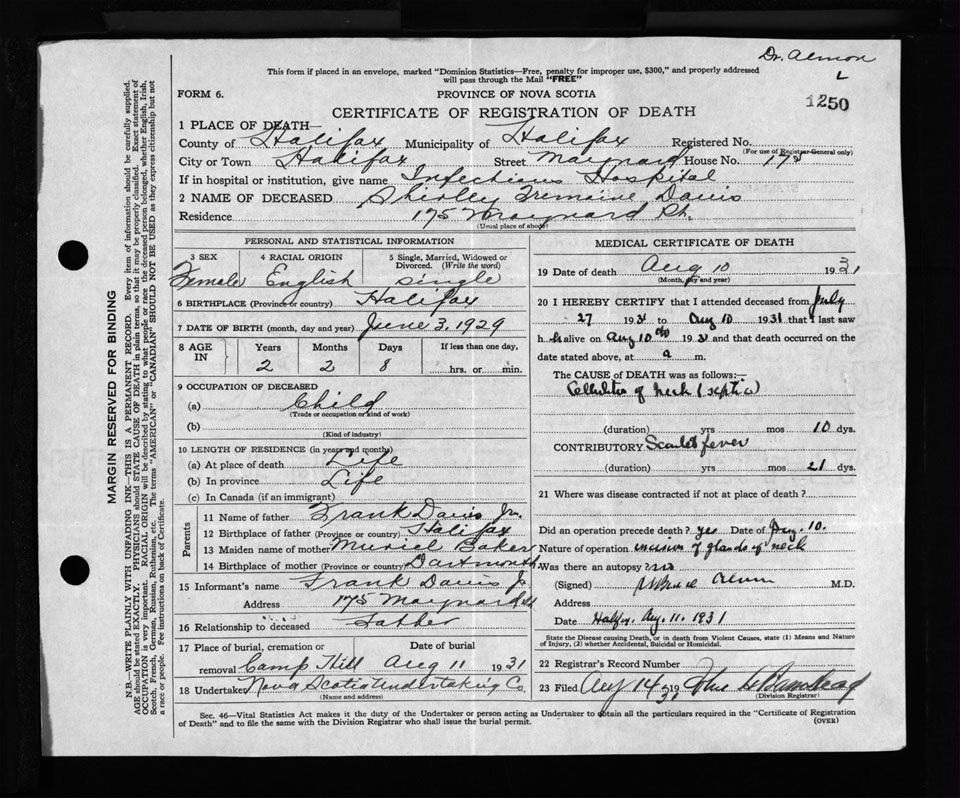 Dr. Almon
L
This form if placed in an envelope, marked "Dominion Statistics—Free, penalty for improper use, $300," and properly addressed
will pass through the Mail "FREE"
FORM 6.
PROVINCE OF NOVA SCOTIA
1250
CERTIFICATE OF REGISTRATION OF DEATH
1 PLACE OF DEATH—
County of Halifax Municipality of Halifax Registered No.
(For use of Registrar General only)
City or Town Halifax Street Maynard House No. 175
If in hospital or institution, give name Infectious Hospital
2 NAME OF DECEASED Shirley Tremaine Davis
Residence 175 Maynard St.
(Usual place of abode)
PERSONAL AND STATISTICAL INFORMATION
3 SEX 4 RACIAL ORIGIN 5 Single, Married, Widowed or Divorced. (Write the word)
Female English Single
6 BIRTHPLACE (Province or country) Halifax
7 DATE OF BIRTH (month, day and year) June 3, 1929
8 AGE IN Years Months Days If less than one day,
2 2 8 hrs. or min.
9 OCCUPATION OF DECEASED
(a) Child
(Trade or occupation or kind of work)
(b)
(Kind of industry)
10 LENGTH OF RESIDENCE (in years and months)
(a) At place of death Life
(b) In province Life
(c) In Canada (if an immigrant)
Parents
11 Name of father Frank Davis Jr.
12 Birthplace of father (Province or country) Halifax
13 Maiden name of mother Muriel Baker
14 Birthplace of mother (Province or country) Dartmouth
15 Informant's name Frank Davis Jr
Address 175 Maynard St
16 Relationship to deceased Father
17 Place of burial, cremation or Date of burial
removal Camp Hill Aug 11 1931
18 Undertaker Nova Scotia Undertaking Co.
(Name and address)
MEDICAL CERTIFICATE OF DEATH
19 Date of death Aug 10 1931
(Month, day and year)
20 I HEREBY CERTIFY that I attended deceased from July
27 1931 to Aug 10 1931 that I last saw
h alive on Aug 10 1931 and that death occurred on the
date stated above, at a m.
The CAUSE of DEATH was as follows:—
Cellulitis of neck (septic)
(duration) yrs mos 10 dys.
CONTRIBUTORY Scarlet fever
(duration) yrs mos 21 dys.
21 Where was disease contracted if not at place of death?
Did an operation precede death? yes Date of Aug. 10.
Nature of operation incision of glands of neck
Was there an autopsy? no
(Signed) Almon M.D.
Address
Date Halifax, Aug. 11. 1931
State the Disease causing Death, or in death from Violent Causes, state (1) Means and Nature
of Injury, (2) whether Accidental, Suicidal or Homicidal.
22 Registrar's Record Number
23 Filed Aug 14 1931
(Division Registrar)
Sec. 46—Vital Statistics Act makes it the duty of the Undertaker or person acting as Undertaker to obtain all the particulars required in the "Certificate of Registration
of Death" and to file the same with the Division Registrar who shall issue the burial permit.
(OVER)
MARGIN RESERVED FOR BINDING
N.B.—WRITE PLAINLY WITH UNFADING INK—THIS IS A PERMANENT RECORD. Every item of information should be carefully supplied.
AGE should be stated EXACTLY. PHYSICIANS should STATE CAUSE OF DEATH in plain terms, so that it may be properly classified. Exact statement of
OCCUPATION is very important. RACIAL ORIGIN will be described by stating to what people or race the deceased person belonged, whether English, Irish,
Scotch, French, German, Russian, Ruthenian, etc. The terms "AMERICAN" or "CANADIAN" SHOULD NOT BE USED as they express citizenship but not
a race or people. Fee instructions on back of Certificate.